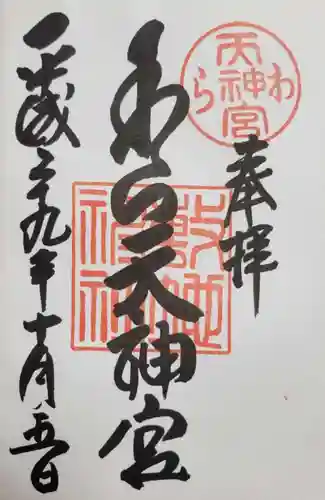 奉拝
わら天神宮
わら天神宮
敷地神社
平成二十九年十月五日